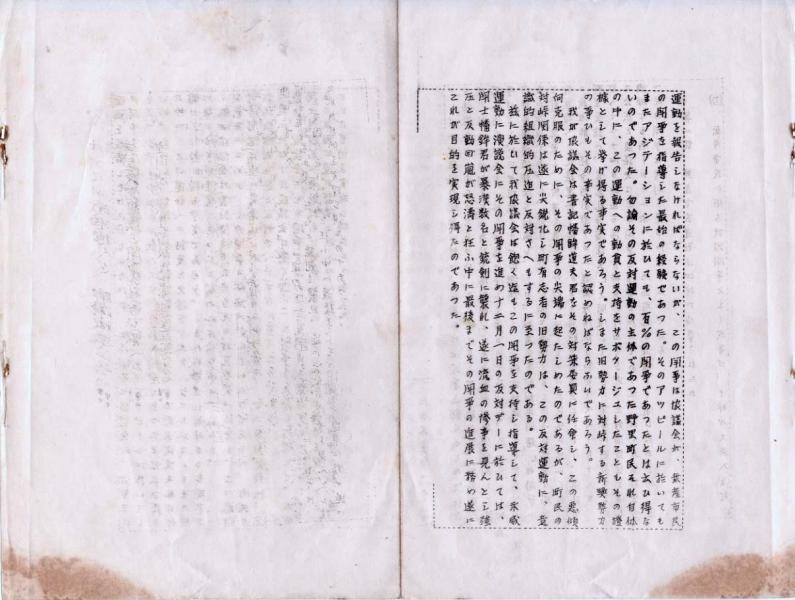 運動を報告しなければならないが、この闘争は協議会が、無産市民
の闘争を指導した最始の経験であつた。そのアツピールに於いても
またアジテーションに於ひても、百%の闘争であつたとは云ひ得な
いのであつた。勿論その反対運動の主体であつた野里町民それ自体
の中に、この運動への動員と支持をサボタージユしたこともその證
據として挙げ得る事実であろう。しまた旧勢力に対峙する新興勢力
の争ひもその事実であつたと認めねばならないであろう。
我が協議会は書記幡鉾道夫君をその対策委員に任命し、この悪傾
向克服のために、その闘争の尖端に起たしめたのであるが、町民の
対峙関係は遂に尖鋭化し町有志者の旧勢力は、この反対運動に、意
識的組織的圧迫と反対さへもするに至つたのである。
茲に於いて我協議会は飽く迄もこの闘争を支持し指導して、示威
運動に演説会にその闘争を進め十二月一日の反対デーに於ひては、
闘士幡鉾君が暴漢数名と銃剣に襲れ、遂に流血の惨事を見んとし強
圧と反動の嵐が怒濤と狂ふ中に最後までその闘争の進展に務め遂に
これが目的を実現し得たのであつた。